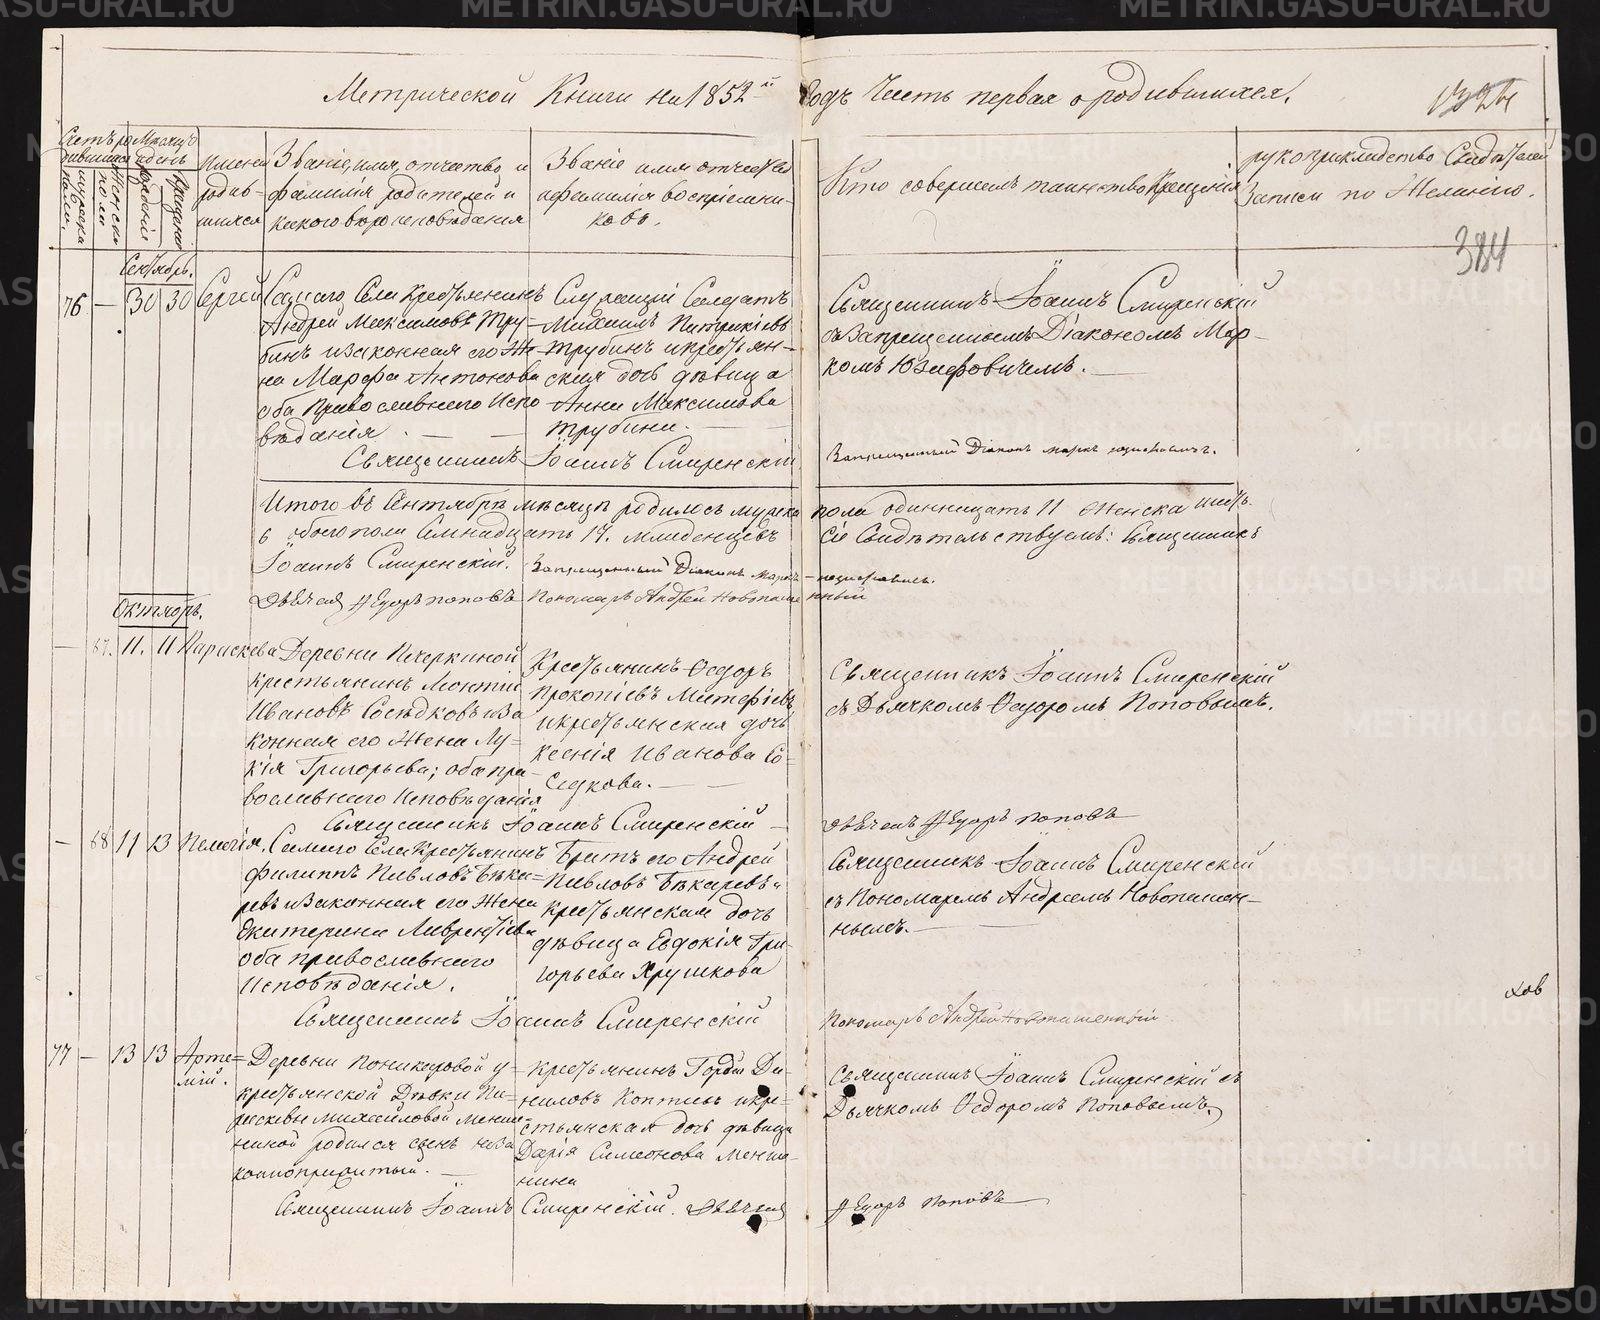 METRIKI.GASU-URAL.RU
METRIKI.GASU-URAL.RU
Метрической Книги на 1852й Годъ Часть первая о родившихся.
Счетъ родившихся
мужеска пола.
женска пола
Мѣсяцъ и день
рожденія
крещенія
Имена родившихся
Званіе, имя, отчество и
фамилія родителей и
какого вѣроисповѣданія
Званіе имя отчество
и фамилія воспріемни-
ковъ.
Кто совершалъ таинство Крещенія
рукоприкладство Свидѣтелей
Записи по Желанію.
384
Сентябрь.
76 — 30 30 Сергей
Самаго Села Крестьянинъ
Андрей Максимовъ Тру-
бинъ и законная его Же-
на Марфа Антонова
оба Православнаго Испо-
вѣданія
Служащій Солдатъ
Михаилъ Патрикіевъ
Трубинъ и крестьян-
ская дочь дѣвица
Анна Максимова
Трубина.
Священникъ Іоаннъ Смиренскій
съ Запрещеннымъ Діакономъ Мар-
комъ Юзефовичемъ.
Священникъ Іоаннъ Смиренскій
Запрещенный Діаконъ Маркъ Юзефовичъ.
Итого въ Сентябрѣ мѣсяцѣ родилось мужска пола одиннадцать 11 Женска шесть
6 обоего пола Семнадцать 17. младенцевъ Сіе Свидѣтельствуемъ: Священникъ
Іоаннъ Смиренскій. Запрещенный Діаконъ Маркъ Юзефовичь.
Дьячекъ Ѳедоръ Поповъ Пономарь Андрей Новопашенный
Октябрь.
— 67. 11. 11 Параскева
Деревни Печеркиной
крестьянинъ Леонтій
Ивановъ Сосѣдковъ и за
конная его Жена Лу-
кія Григорьева; оба пра-
вославнаго Исповѣданія
Крестьянинъ Ѳедоръ
Прокопіевъ Матфіевъ
и крестьянская дочь
Ксенія Иванова Со-
седкова.
Священникъ Іоаннъ Смиренскій
съ Дьячкомъ Ѳедоромъ Поповымъ.
Священникъ Іоаннъ Смиренскій
Дьячекъ Ѳедоръ Поповъ
— 68 11 13 Пелагія.
Самаго Села Крестьянинъ
Филиппъ Павловъ Бѣка-
ревъ и Законная его Жена
Екатерина Лаврентіева
оба православнаго
Исповѣданія.
Братъ его Андрей
Павловъ Бѣкаревъ и
крестьянская дочь
дѣвица Евдокія Гри-
горьева Хрушкова
Священникъ Іоаннъ Смиренскій
съ Пономаремъ Андреемъ Новопашен-
нымъ.
Священникъ Іоаннъ Смиренскій
Пономарь Андрей Новопашенный
77 — 13 13 Арте-
мій.
Деревни у
крестьянской Дѣвки Па-
раскевы Михайловой Менши-
ниной родился сынъ неза
конноприжитый.
Крестьянинъ Гордій Да-
ниловъ Коптяевъ и кре-
стьянская дочь дѣвица
Дарія Симеонова Менши-
нина
Священникъ Іоаннъ Смиренскій съ
Дьячкомъ Ѳедоромъ Поповымъ.
Священникъ Іоаннъ Смиренскій. Дьячекъ Ѳедоръ Поповъ
хов
METRIKI.GASU-URAL.RU
METRIKI.GASU-URAL.RU